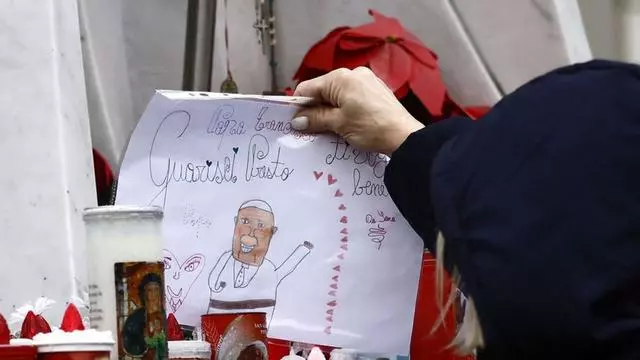 Papa Francesco
Guarisci Presto
Ti voglio
bene
Da